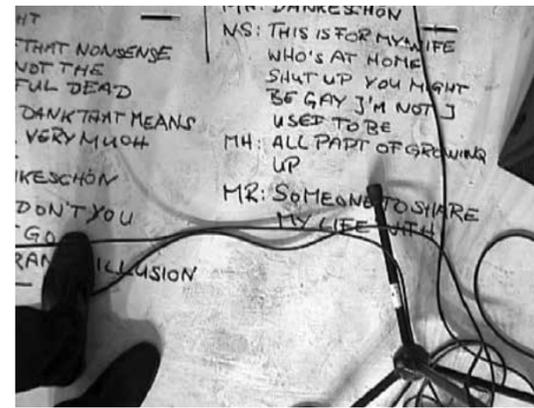 HT
THAT NONSENSE
NOT THE
FUL DEAD
DANK THAT MEANS
VERY MUCH
KESCHÖN
DON'T YOU
GO
ILLUSION
MR: DANKESCHÖN
NS: THIS IS FOR MY WIFE
WHO'S AT HOME
SHUT UP YOU MIGHT
BE GAY I'M NOT I
USED TO BE
MH: ALL PART OF GROWING
UP
MR: SOMEONE TO SHARE
MY LIFE WITH